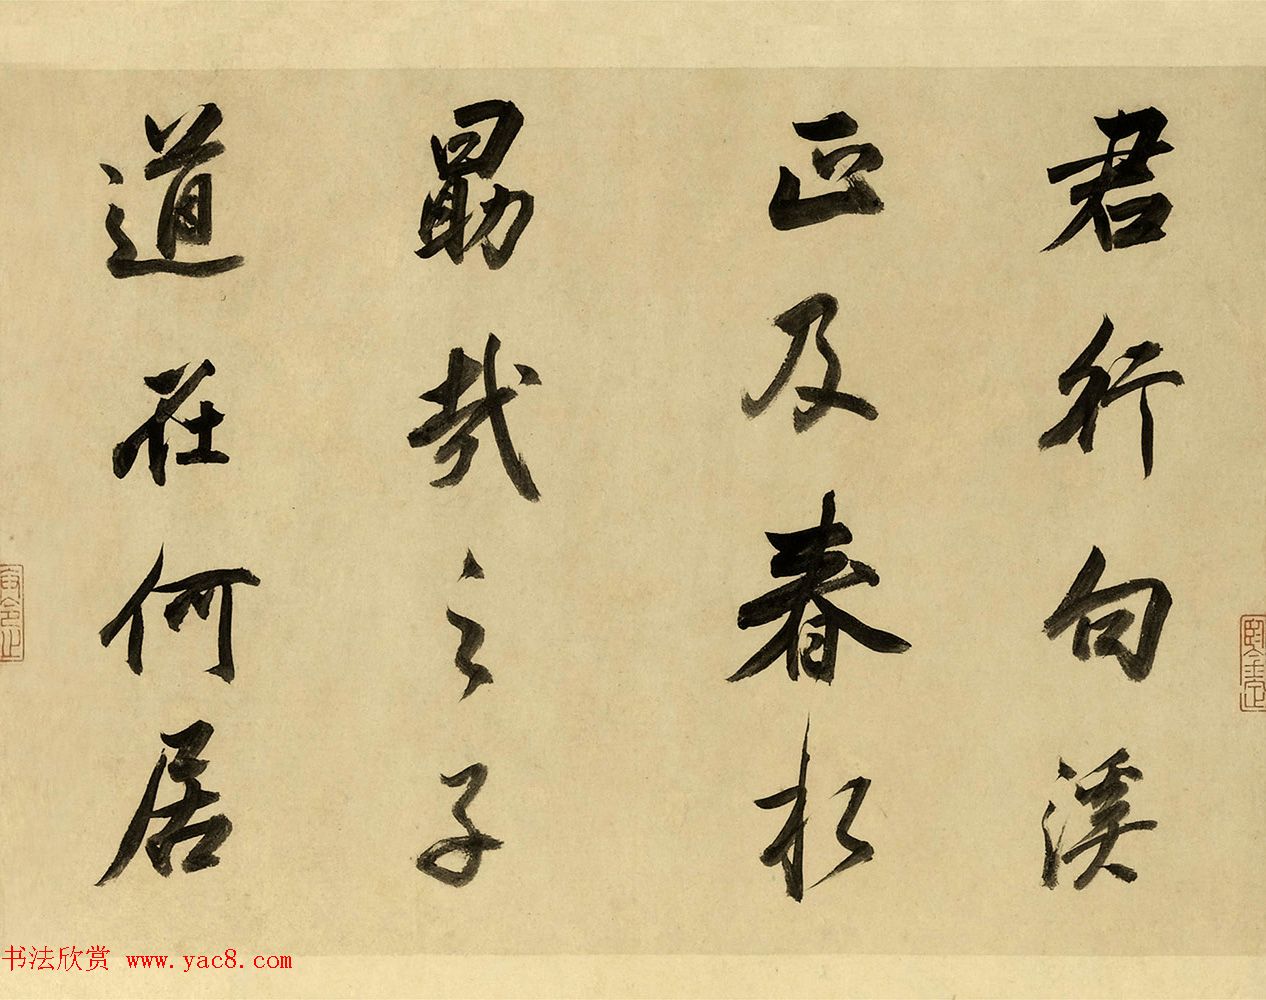 君行句溪
正及春初
勗哉之子
道在何居
书法欣赏 www.yac8.com